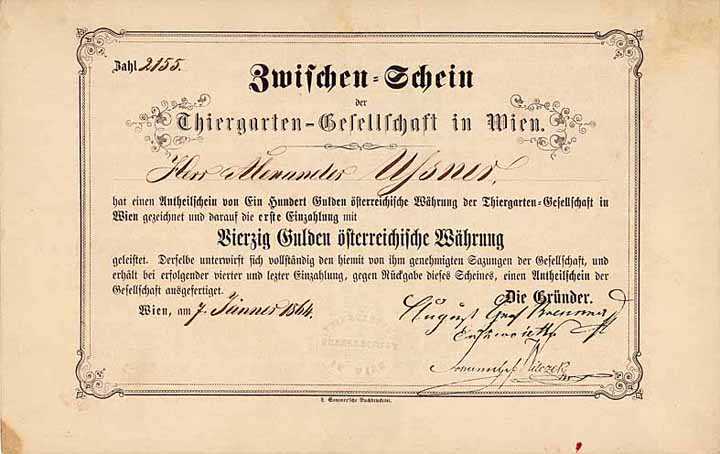 Zahl 2155.
Zwischen-Schein
der
Thiergarten-Gesellschaft in Wien.
Herr Alexander
hat einen Antheilschein von Ein Hundert Gulden österreichische Währung der Thiergarten-Gesellschaft in
Wien gezeichnet und darauf die erste Einzahlung mit
Vierzig Gulden österreichische Währung
geleistet. Derselbe unterwirft sich vollständig den hiemit von ihm genehmigten Sazungen der Gesellschaft, und
erhält bei erfolgender vierter und lezter Einzahlung, gegen Rückgabe dieses Scheines, einen Antheilschein der
Gesellschaft ausgefertiget.
Die Gründer.
Wien, am 7. Jänner 1864.
August Graf
Wilczek
L. Sommer'sche Buchdruckerei.